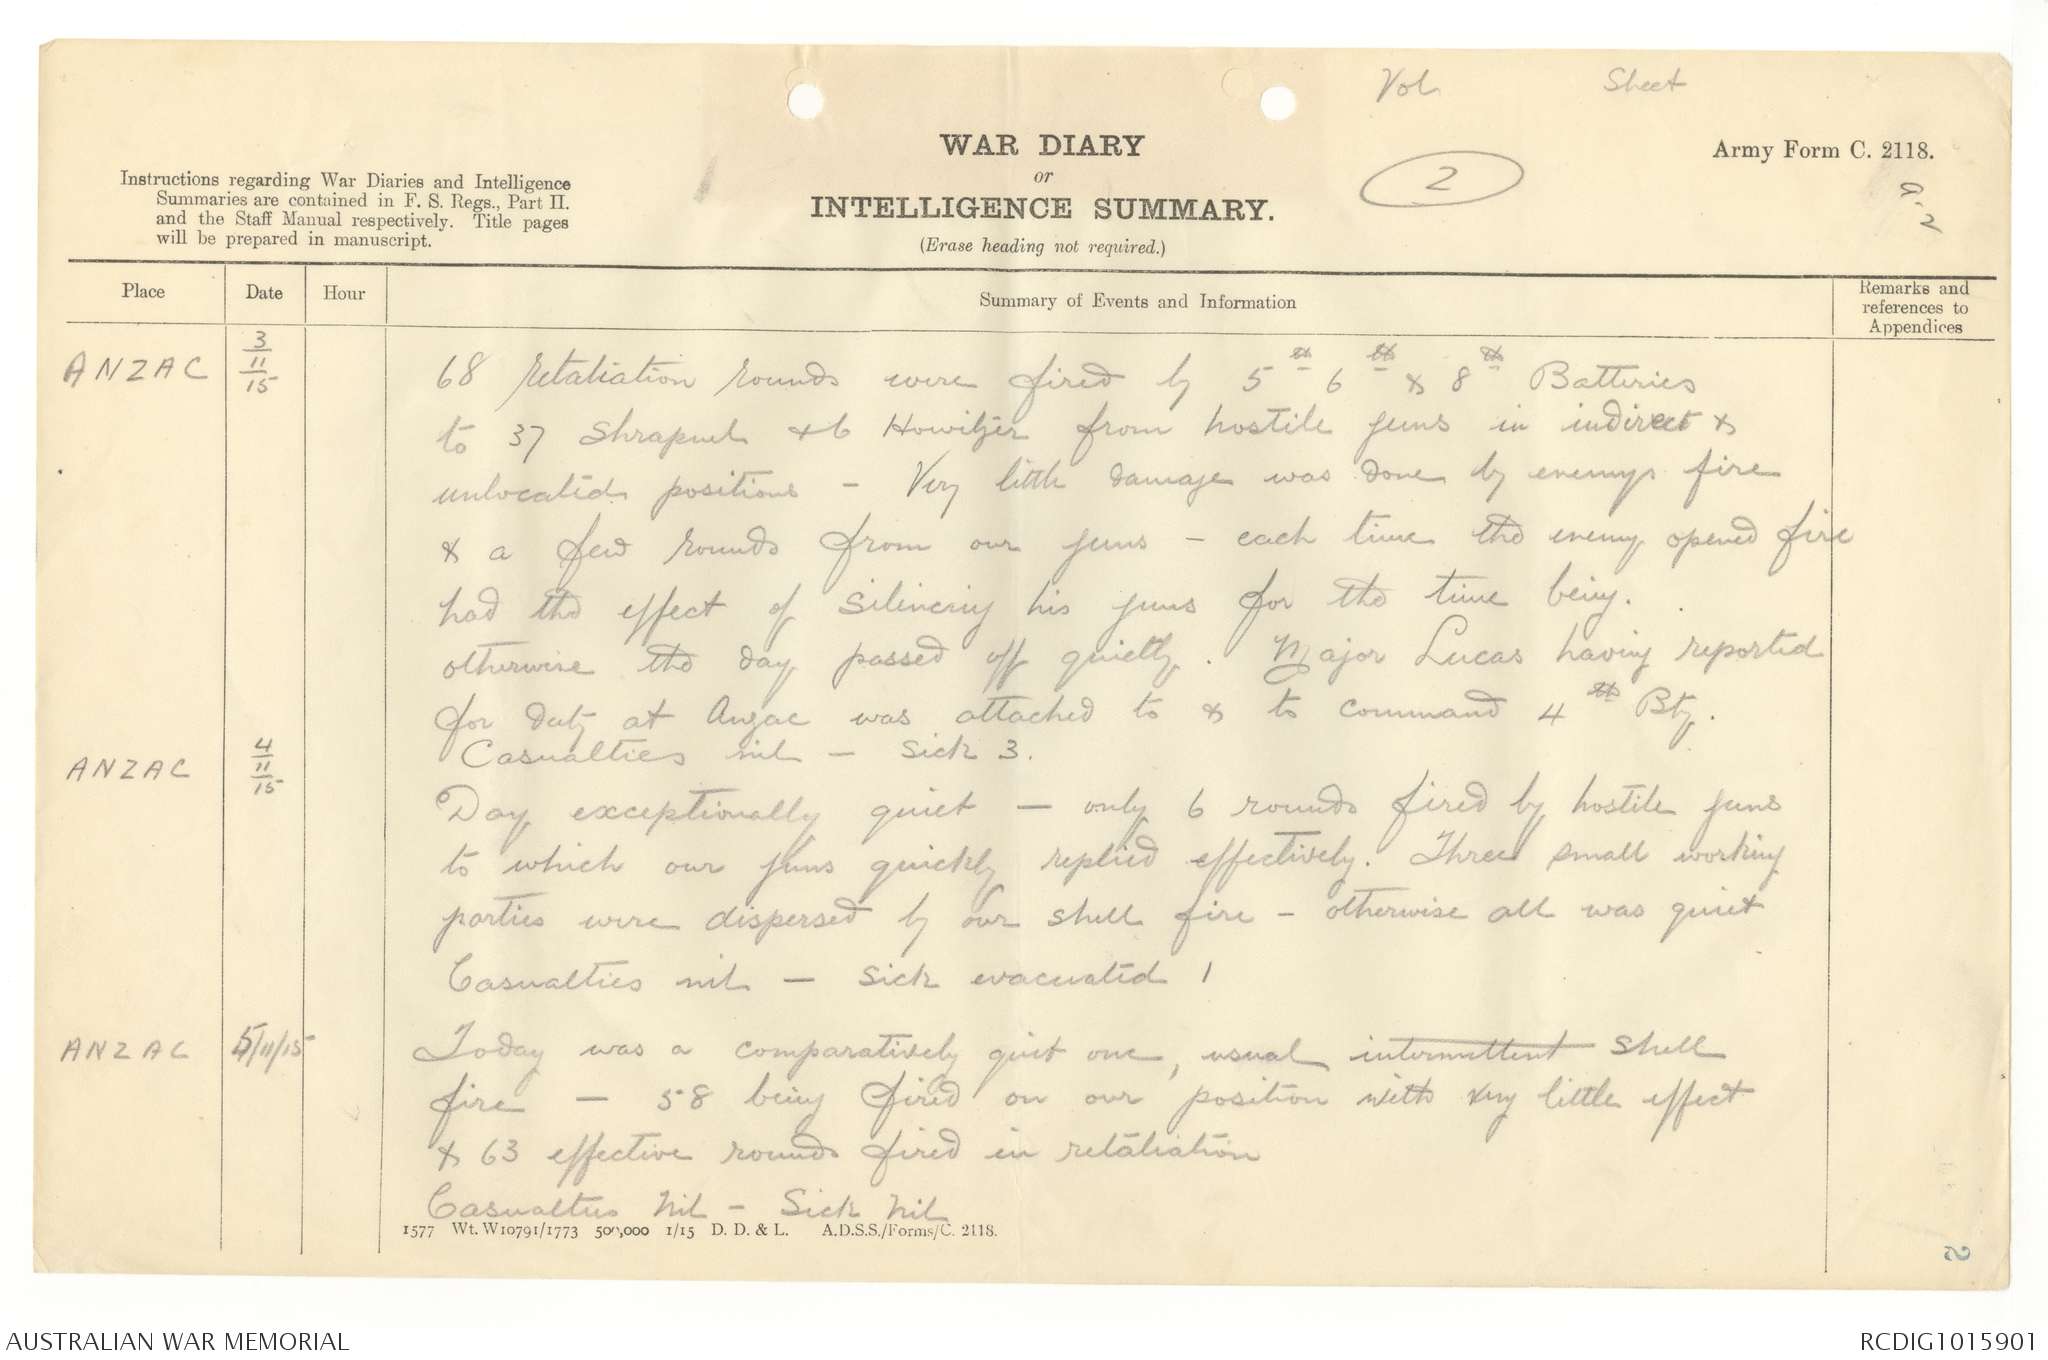 Vol Sheet
WAR DIARY
or
INTELLIGENCE SUMMARY.
(Erase heading not required.)
2
Army Form C. 2118.
Instructions regarding War Diaries and Intelligence
Summaries are contained in F. S. Regs., Part II.
and the Staff Manual respectively. Title pages
will be prepared in manuscript.
Place Date Hour Summary of Events and Information Remarks and references to Appendices
ANZAC 3/11/15 68 retaliation rounds were fired by 5th 6th & 8th Batteries
to 37 Shrapnel & 6 Howitzer from hostile guns in indirect &
unlocated positions - Very little damage was done by enemys fire
& a few rounds from our guns - each time the enemy opened fire
had the effect of silencing his guns for the time being.
otherwise the day passed off quietly. Major Lucas having reported
for duty at Anzac was attached to & to command 4th Bty.
Casualties nil - Sick 3.
ANZAC 4/11/15
Day exceptionally quiet - only 6 rounds fired by hostile guns
to which our guns quickly replied effectively. Three small working
parties were dispersed by our shell fire - otherwise all was quiet
Casualties nil - Sick evacuated 1
ANZAC 5/11/15 Today was a comparatively quit one, usual intermittent shell
fire - 58 being fired on our position with very little effect
& 63 effective rounds fired in retaliation
Casualties Nil - Sick Nil
1577 Wt. W10791/1773 500,000 1/15 D. D. & L. A.D.S.S./Forms/C. 2118.
2
AUSTRALIAN WAR MEMORIAL RCDIG1015901